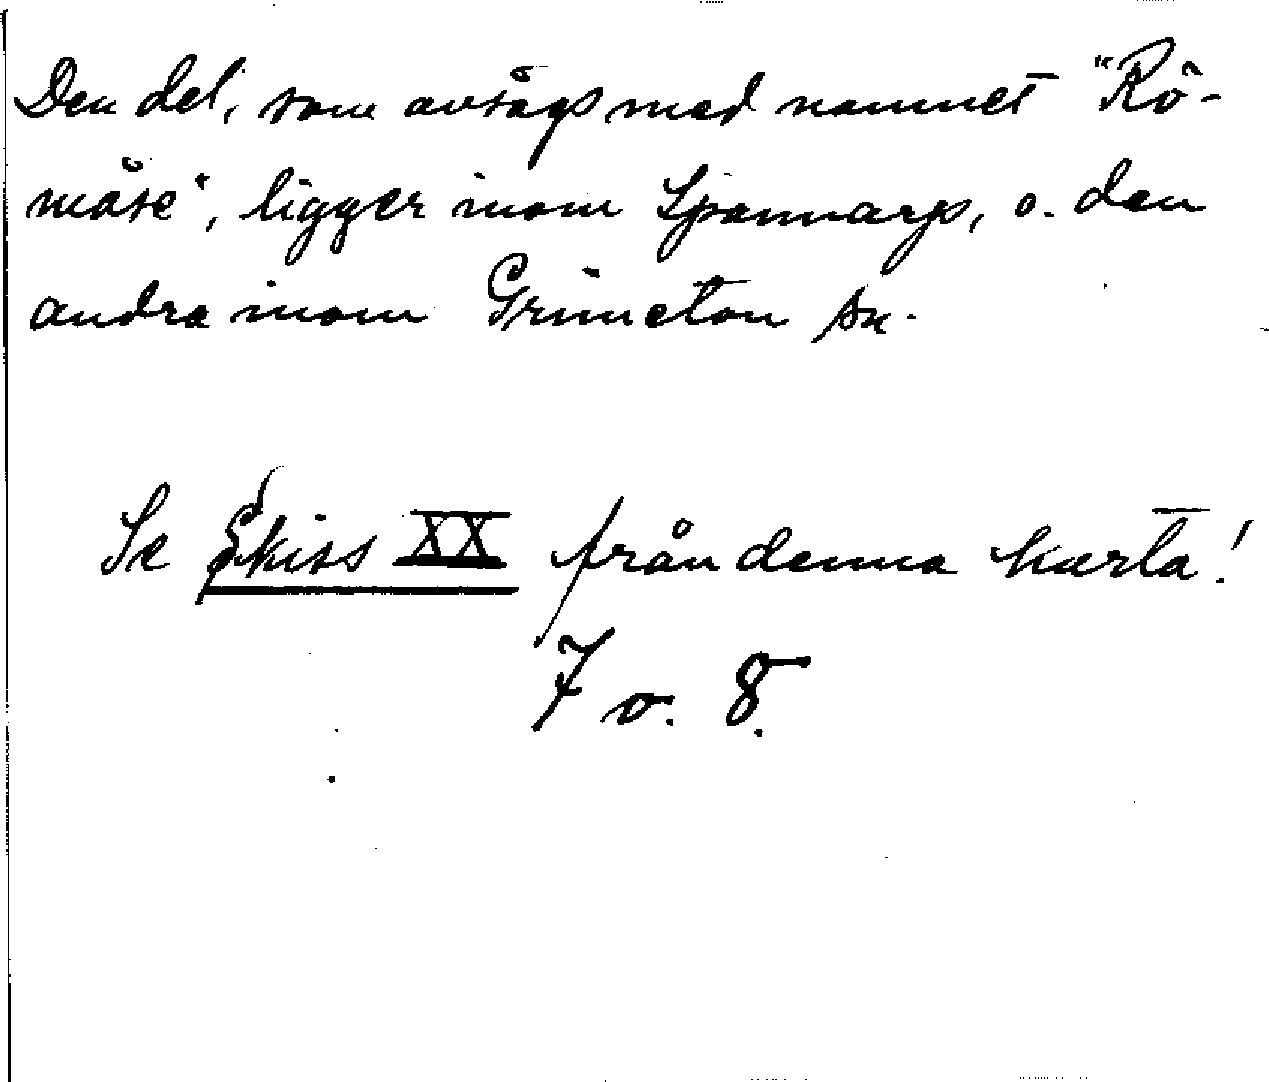 Den del, som avsågs med namnet "Rö-
måse", ligger inom Spannarp, o. den
andra inom Grimeton sn.
Se Skiss XX från denna karta!
7 o. 8.